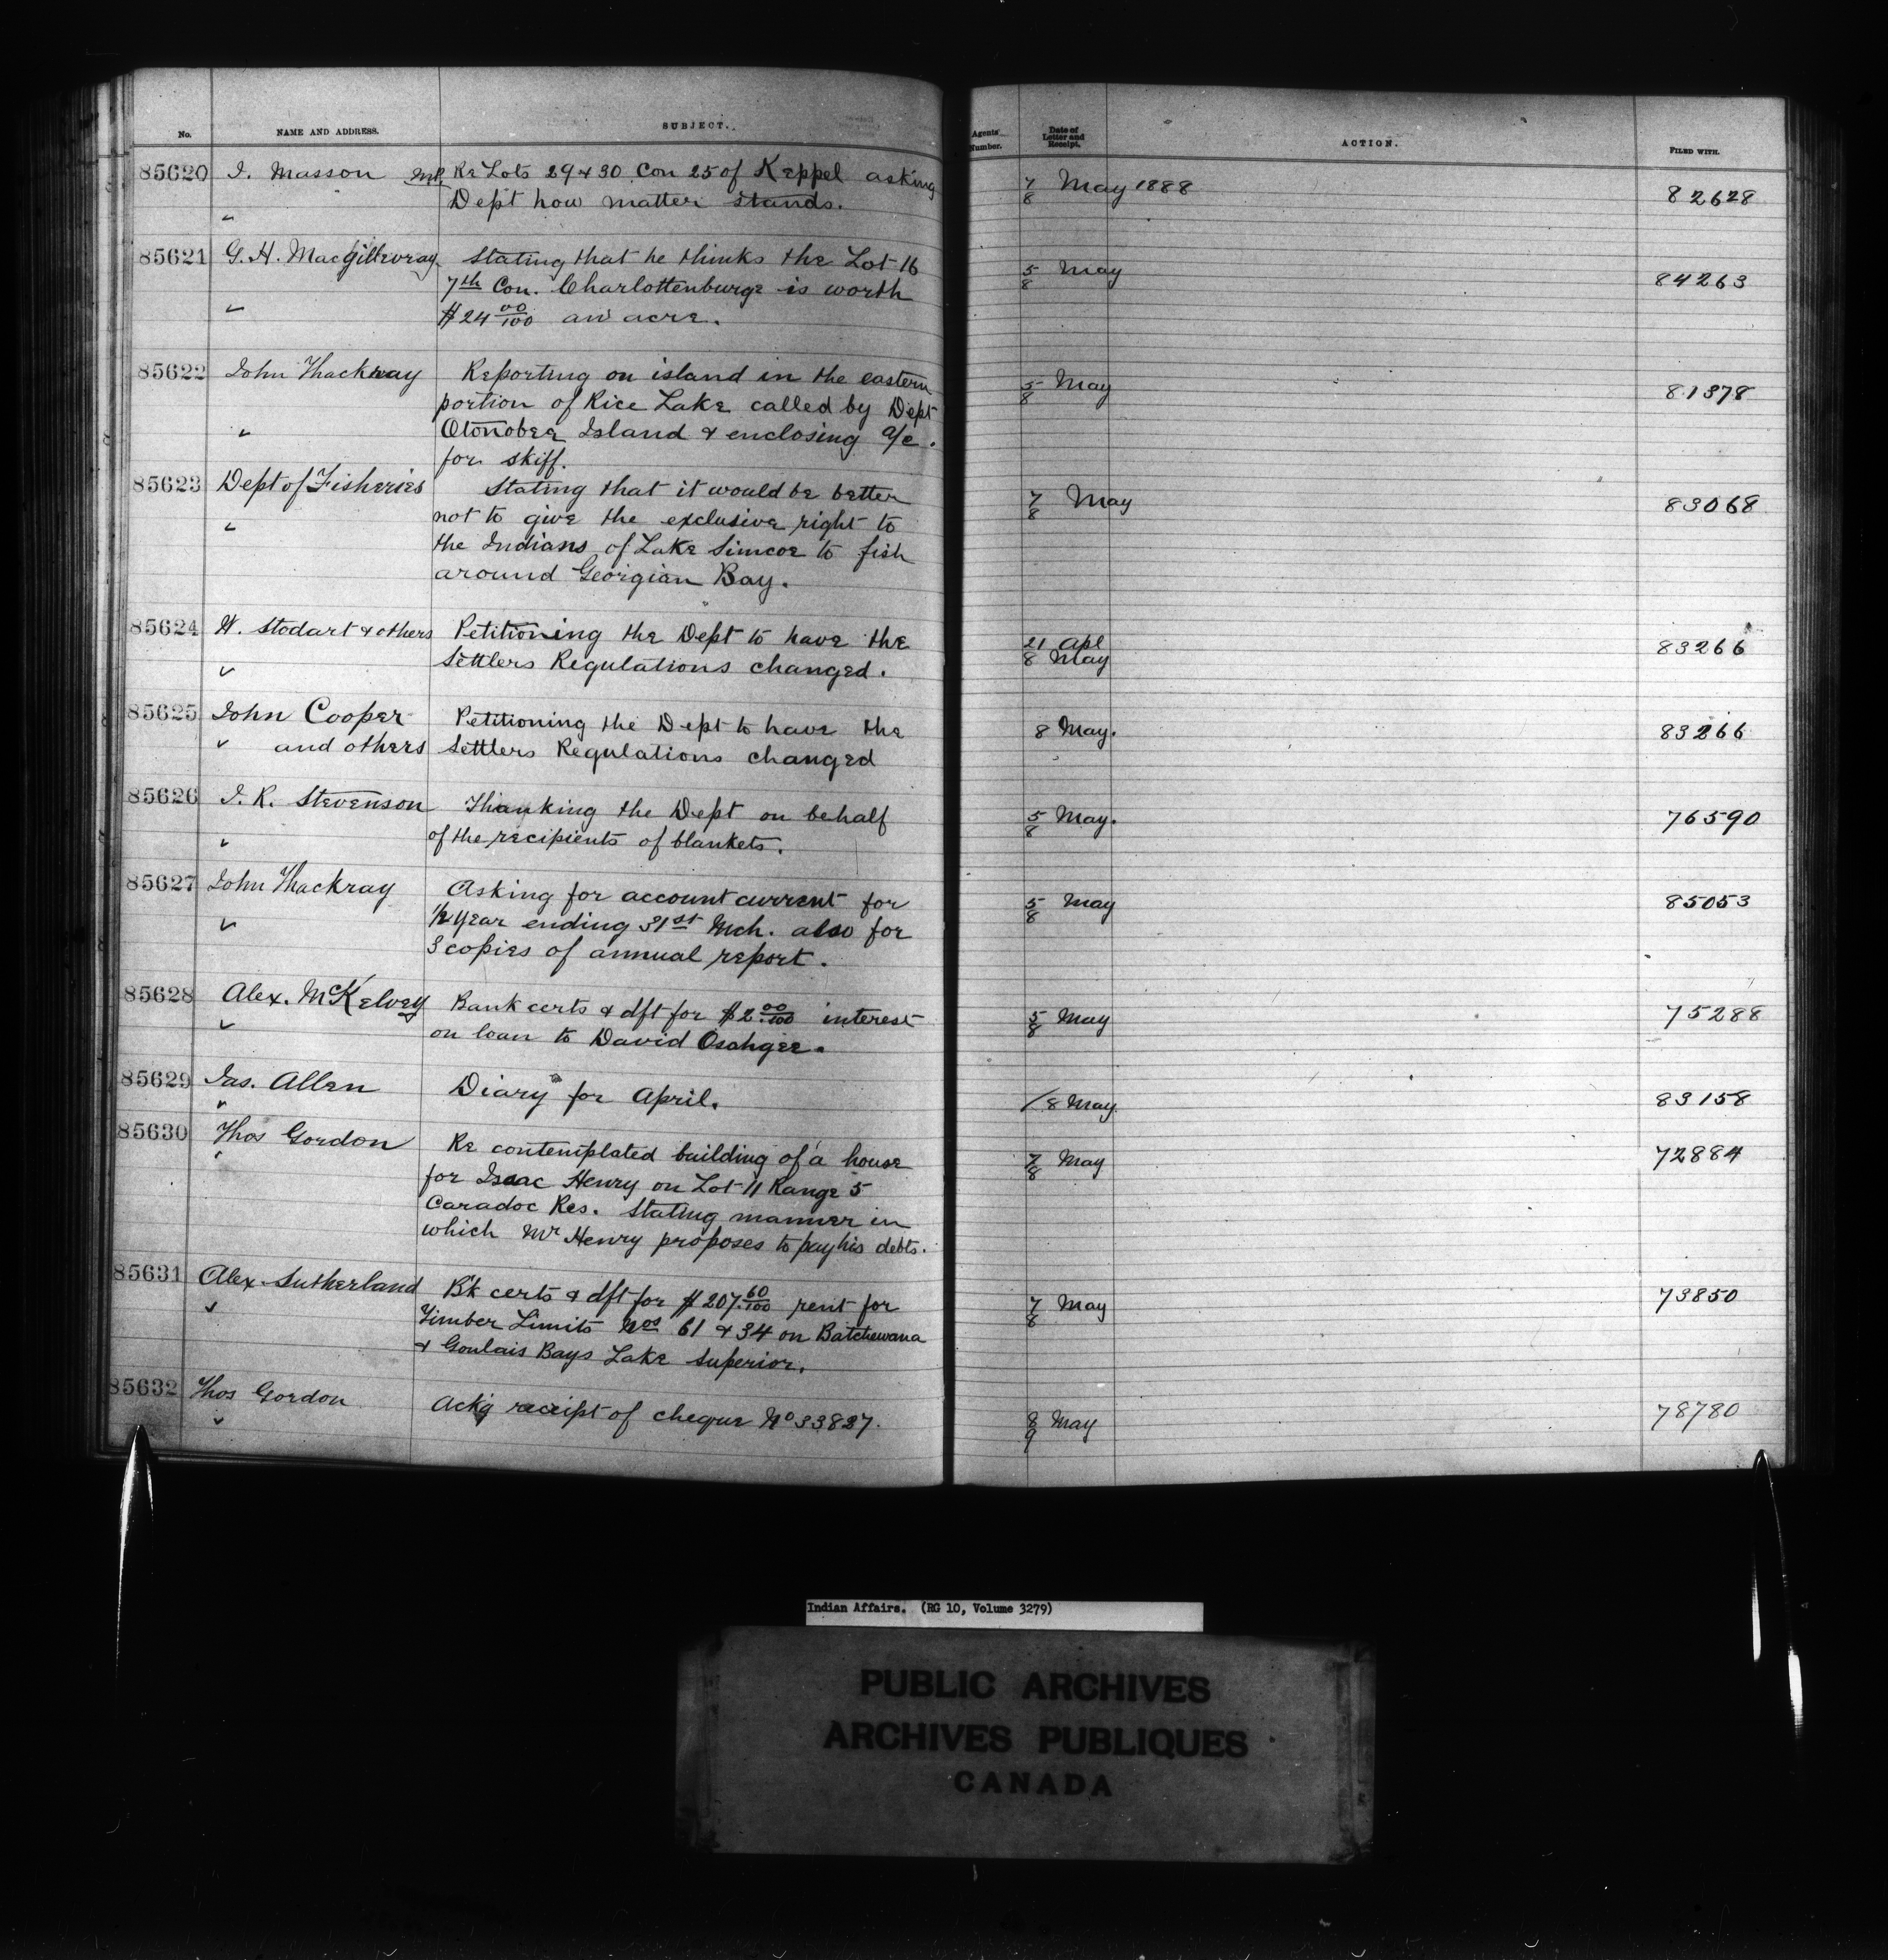 No. NAME AND ADDRESS. SUBJECT. Agents' Number. Date of Letter and Receipt. ACTION. FILED WITH.
85620 J. Masson M.P. Re Lots 29 & 30 Con 25 of Keppel asking 7/8 May 1888 82628
" Dept how matter stands.
85621 G. H. MacGillevray Stating that he thinks the Lot 16 5/8 May 84263
7th Con. Charlottenburge is worth
" $24 00/100 an acre.
85622 John Thackray Reporting on island in the eastern 5/8 May 81378
portion of Rice Lake called by Dept
" Otonobee Island & enclosing a/c.
for skiff.
85623 Dept of Fisheries Stating that it would be better 7/8 May 83068
" not to give the exclusive right to
the Indians of Lake Simcoe to fish
around Georgian Bay.
85624 W. Stodart & others Petitioning the Dept to have the 21 Apl 83266
" Settlers Regulations changed. 8 May
85625 John Cooper Petitioning the Dept to have the 8 May. 83266
" and others Settlers Regulations changed
85626 J. R. Stevenson Thanking the Dept on behalf 5/8 May. 76590
" of the recipients of blankets.
85627 John Thackray Asking for account current for 5/8 May 85053
" 1/2 year ending 31st Mch. also for
3 copies of annual report.
85628 Alex. McKelvey Bank certs & dft for $2.00/100 interest 5/8 May 75288
" on loan to David Osahgee.
85629 Jas. Allen Diary for April. / 8 May. 83158
"
85630 Thos Gordon Re contemplated building of a house 7/8 May 72884
" for Isaac Henry on Lot 11 Range 5
Caradoc Res. Stating manner in
which Mr Henry proposes to pay his debts.
85631 Alex. Sutherland B'k certs & dft for $207.60/100 rent for 7/8 May 73850
" Timber Limits Nos 61 & 34 on Batchewana
& Goulais Bays Lake Superior.
85632 Thos Gordon Ackg receipt of cheque No 33827. 8/9 May 78780
"
Indian Affairs. (RG 10, Volume 3279)
PUBLIC ARCHIVES
ARCHIVES PUBLIQUES
CANADA